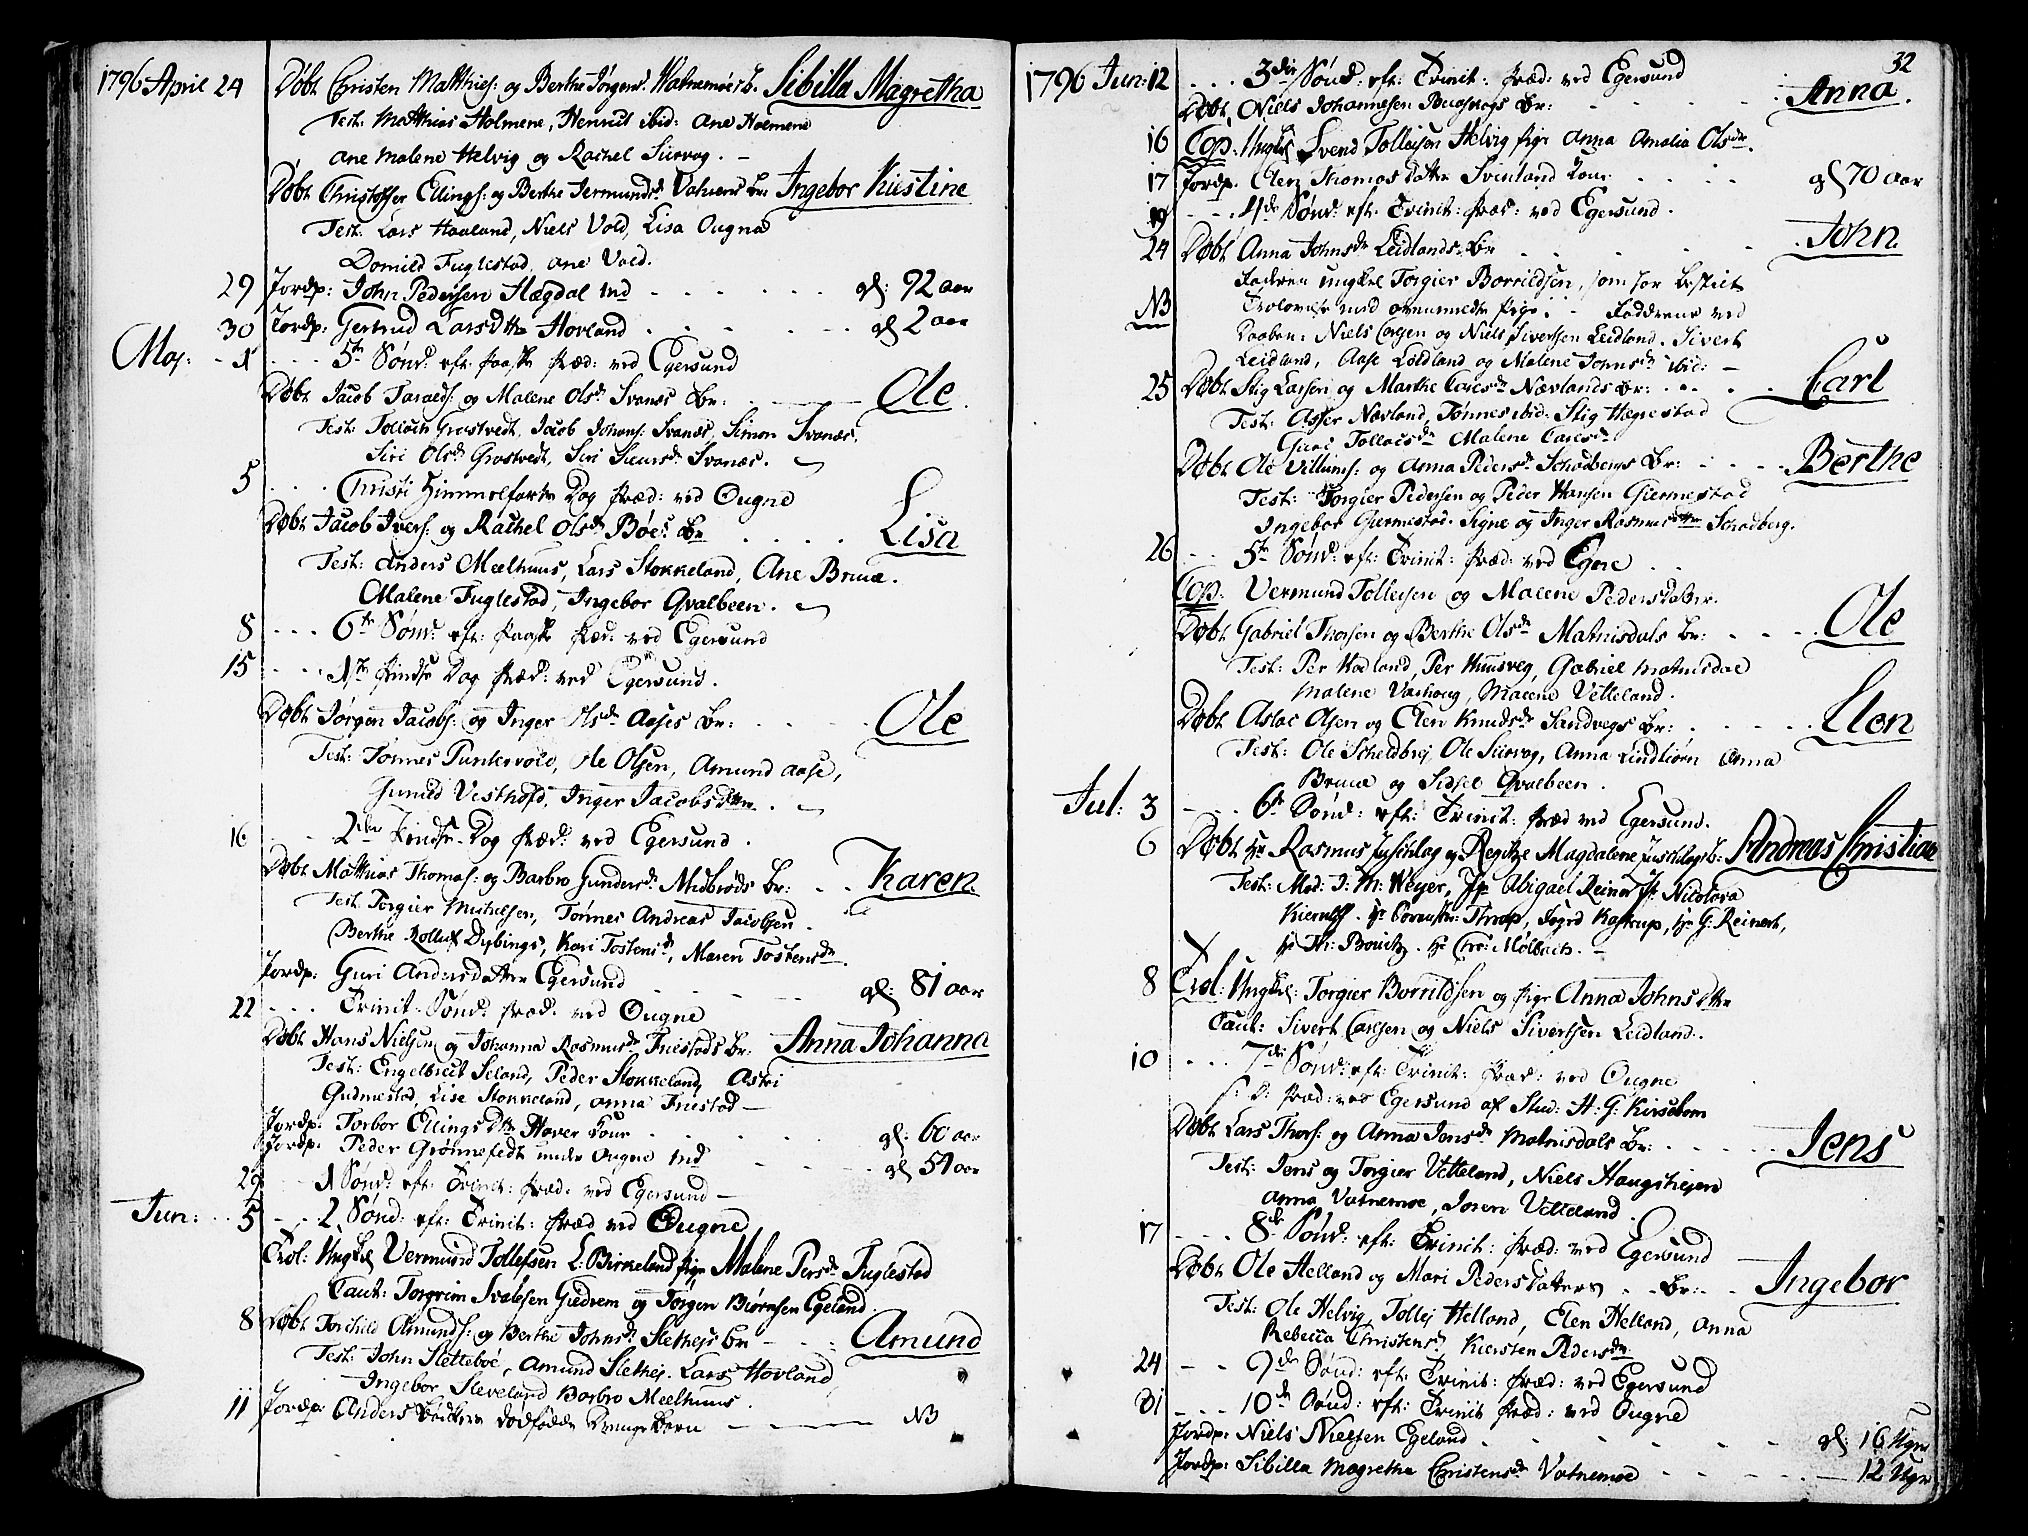 1796 April 24 Døbt Christen Matthies: og Berthe Jørgens: Watnemøes b. Sibilla Magretha
Test: Matthias Holmene, Henric ibid: Ane Holmene
Ane Malene Helvig og Rachel Siirvog. -
Døbt Christoffer Ellings: og Berthe Jermunds Br: Ingebor Kiestine
Test: Lars Haaland, Niels Vold, Lisa Ougnad
Domild Fuglestad, Ane Vold.
29 Jordp: John Pedersen Slægdal Ind gl: 92 aar
30 Jordp: Gertrud Larsdttr Hovland gl 2 aar
Maj: 1 5te Sønd: eft: Paaske Præd: ved Egersund
Døbt Jacob Taralds: og Malene Olsdr Svanes Br: Ole
Test: Tollach Grøstvedt, Jacob Johans: Svanæs, Simon Svanæs,
Siri Olsdr Grøstvedt, Siri Siursdr Svanæs.
5 Christi Himmelfarts Dag Præd: ved Ougne
Døbt Jacob Ivers: og Rachel Olsdr Bøes Br Lisa
Test: Anders Mælhuus, Lars Stokkeland, Ane Bruæ.
Malene Fuglestad, Ingebor Qvalbeen.
8 6te Sønd: eft: Paaske Præd: ved Egersund
15 1ste Pindse Dag Præd: ved Egersund.
Døbt Jørgen Jacobs: og Inger Olsdr Aases Br: Ole
Test: Tønnes Puntervold, Ole Olsen, Amund Aase,
Gunild Vesthofd, Inger Jacobsdttr.
16 2den Pindse Dag Præd: ved Egersund.
Døbt Matthias Thomas: og Barbro Gundersdr Midbrøds Br: Karen.
Test: Torgier Michelsen, Tønnes Andreas Jacobsen.
Berthe Rolluf Dybings, Kari Tostensdr, Maren Tostensdr.
Jordp: Guri Andersdatter Egersund gl: 81 aar
22 Trinit: Sønd: Præd: ved Ougne
Døbt Hans Nielsen og Johanna Rasmusdr Friestads Br: Anna Johanna
Test: Engelbrect Seland, Peder Stokkeland, Astri
Gudmestad, Lise Stokkeland, Anna Friestad -
Jordp: Torbor Ellingsdttr Hover Kone gl: 60 aar
Jordp: Peder Grønnefedt under Ougne Ind gl 54 aar
29 1 Sønd: eft: Trinit: Præd: ved Egersund -
Jun: 5 2 Sønd: eft: Trinit: Præd ved Ougne
Trol: Ungkl Vermund Tollefsen L: Birkeland pige Malene Persdr Fuglestad
Caut: Torgrim Svalesen Giedrem og Jørgen Biørnsen Egeland.
8 Døbt Torchild Amunds: og Berthe Johnsdr Slethejs Br Amund
Test: John Slettebøe, Amund Slethej. Lars Hovland,
Ingebor Sleveland Barbro Meelhuus.
11 Jordp: Anders dødfødde Drengebarn NB

32
1796 Jun: 12 3die Sønd: eft: Trinit: Præd: ved Egersund
Døbt Niels Johannesen Br: Anna.
16 Cop: Ungkl Svend Tollaksen Helvig pige Anna Amalia Olsdr.
17 Jordp: Elen Thomas datter Svinland Kone gl 70 aar
19 4de Sønd: eft: Trinit: Præd: ved Egersund.
24 Døbt Anna Johnsdr Leidlands Br John.
Faderen ungkarl Torgier Borrildsen, som har bestilt
NB Trolovelse med ovenmeldte Pige: Fadderne ved
Daaben: Niels Carsen og Niels Sivertsen Leidland. Sivert
Leidland, Aase Leidland og Malene Johnsdr ibid: -
25 Døbt Stig Larsen og Marthe Carlsdr Nævlands Br: Carl
Test: Asser Nævland, Tønnes ibid: Stig Hegrestad
Guri Tollacsdr Malene Carlsdr
Døbt Ole Villums: og Anna Pedersdr Schadbergs Br: Berthe
Test: Torgier Pedersen og Peder Hansen Giermestad
Ingebor Giermestad. Signe og Inger Rasmusdttr Schadberg.
26 5te Sønd: eft: Trinit: Præd: ved Egere
Cop. Vermund Tollefsen og Malene Pedersdatter.
Døbt Gabriel Thorsen og Berthe Olsdr Matnisdals Br: Ole
Test: Per Hadland, Per Huusveg, Gabriel Matnisdal
Malene Vashoug, Malene Vetteland.
Døbt Aslac Olsen og Elen Knudsdr Sandvegs Br: Elen
Test: Ole Scheldbrej Ole Siirvog, Anna Lindtiørn Anna
Bruæ og Sidsel Qvalbeen.
Jul: 3 6te Sønd: eft: Trinit: Præd ved Egersund.
6 Døbt Hr Rasmus Juschlag og Regitze Magdalene Juschlags b: Andreas Christian
Test: Mad: J: M: Weyer, Jfr Abigael Reinert Jfr Nicolova
Kierulff. Hr Thrap, Sogrd Kastrup, Hr G: Reinert,
Hr Th: Bowitz. Hr Chr: Mølbach. -
8 Trol: Ungkl: Torgier Borrildsen og Pige Anna Johnsdttr
Caut: Sivert Carlsen og Niels Sivertsen Leidland.
10 7de Sønd: eft: Trinit: Præd: ved Ougne
S: D: Præd: ved Egersund af Stud: H: G: Kirsebom
Døbt Lars Thors: og Anna Jensdr Matnisdals Br: Jens
Test: Jens og Torgier Vetteland, Niels Haugshejen
Anna Vatnemoe, Joren Vetteland.
17 8de Sønd: eft: Trinit: Præd: ved Egersund
Døbt Ole Helland og Mari Pedersdatters Br: Ingebor
Test: Ole Helvig, Tollej Helland, Elen Helland, Anna
Rebecca Christensdr, Kiersten Pedersdr
24 9de Sønd: eft: Trinit: Præd: ved Egersund
31 10de Sønd: eft: Trinit Præd: ved Ougne
Jordp: Niels Nielsen Egeland gl: 16 Uger
Jordp: Sibilla Magretha Christensdr Vatnemoe 12 Uger